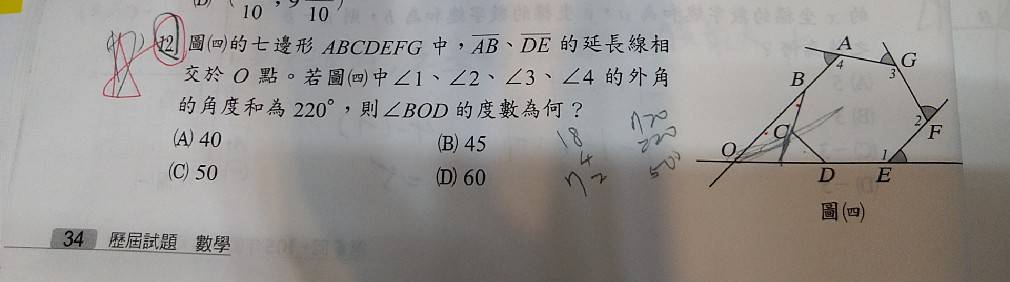 10 , 9 10
12. 圖㈣的七邊形 ABCDEFG 中，AB、DE 的延長線相
交於 O 點。若圖㈣中∠1、∠2、∠3、∠4 的外角
的角度和為 220°，則∠BOD 的度數為何？
(A) 40
(B) 45
(C) 50
(D) 60
18
4
72
720
220
500
A
4
G
3
B
2
F
C
O
1
D
E
圖㈣
34 歷屆試題 數學